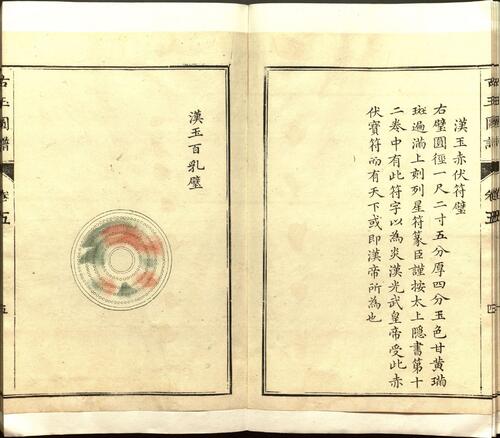 漢玉赤伏符璧
右璧圓徑一尺二寸五分厚四分玉色甘黃瑞
斑遍滿上刻列星符篆臣謹按太上隱書第十
二卷中有此符字以為炎漢光武皇帝受此赤
伏寶符而有天下或即漢帝所為也
古玉圖譜
四
漢玉百乳璧
古玉圖譜
卷五
五